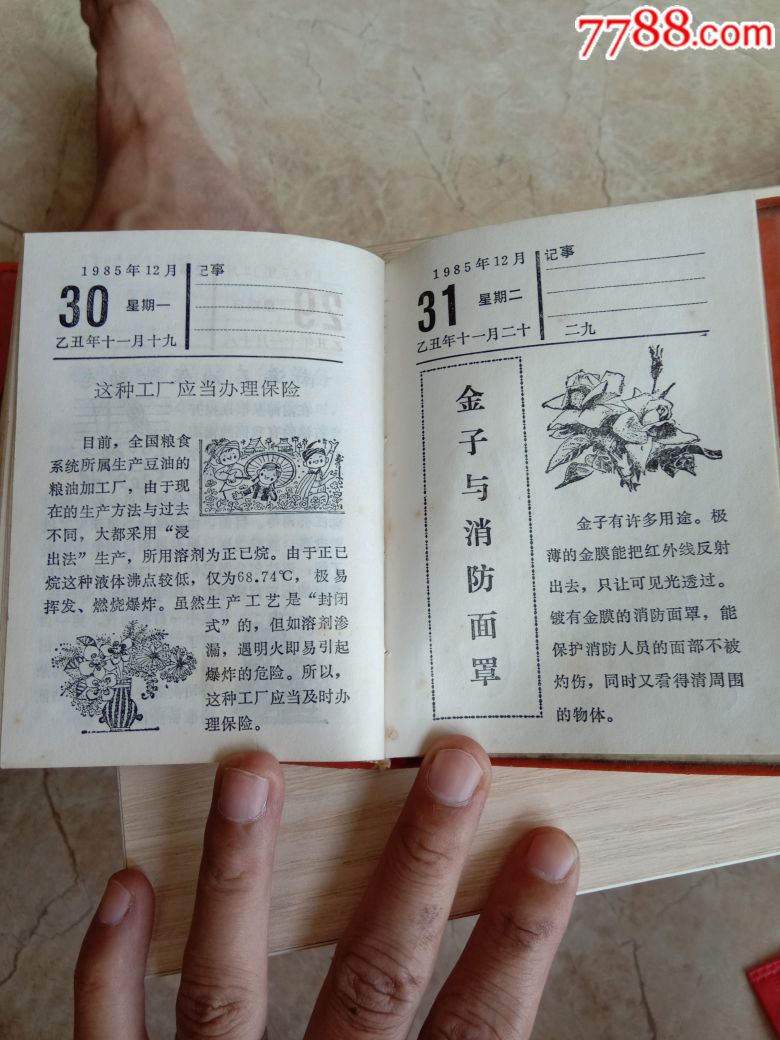 7788.com
1985年12月
记事
30
星期一
乙丑年十一月十九
这种工厂应当办理保险
目前，全国粮食
系统所属生产豆油的
粮油加工厂，由于现
在的生产方法与过去
不同，大都采用“浸
出法”生产，所用溶剂为正已烷。由于正已
烷这种液体沸点较低，仅为68.74℃，极易
挥发、燃烧爆炸。虽然生产工艺是“封闭
式”的，但如溶剂渗
漏，遇明火即易引起
爆炸的危险。所以，
这种工厂应当及时办
理保险。
1985年12月
记事
31
星期二
乙丑年十一月二十
二九
金子与消防面罩
金子有许多用途。极
薄的金膜能把红外线反射
出去，只让可见光透过。
镀有金膜的消防面罩，能
保护消防人员的面部不被
灼伤，同时又看得清周围
的物体。